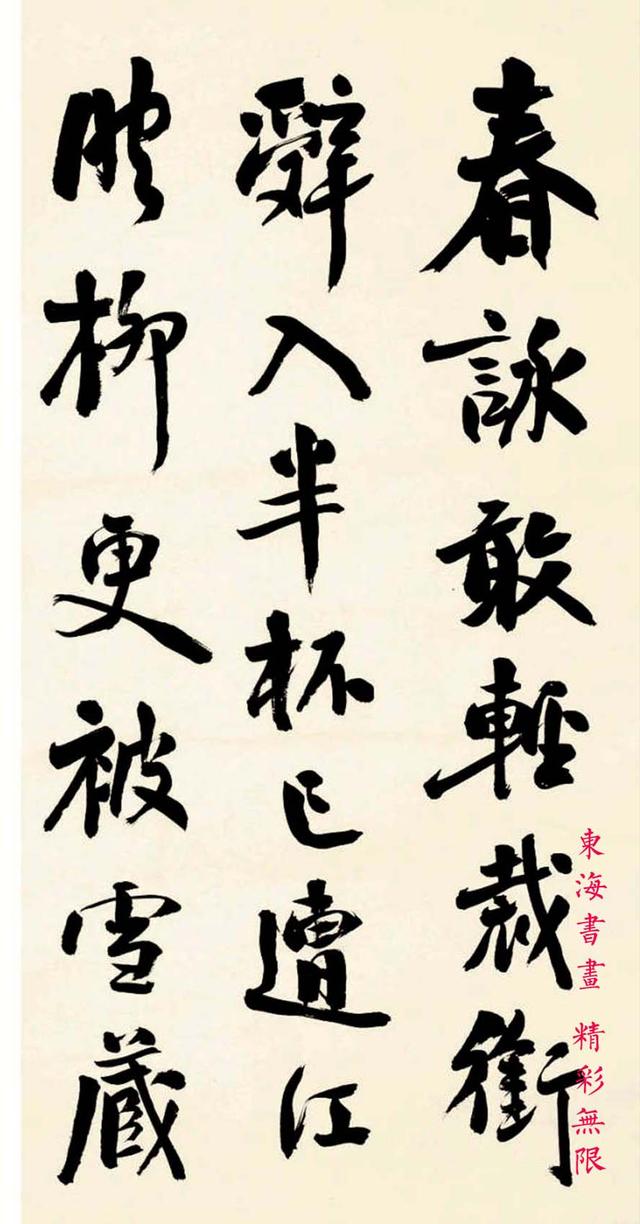 春詠敢輕裁銜
辭入半杯已遭江
映柳更被雪藏
東海書畫 精彩無限